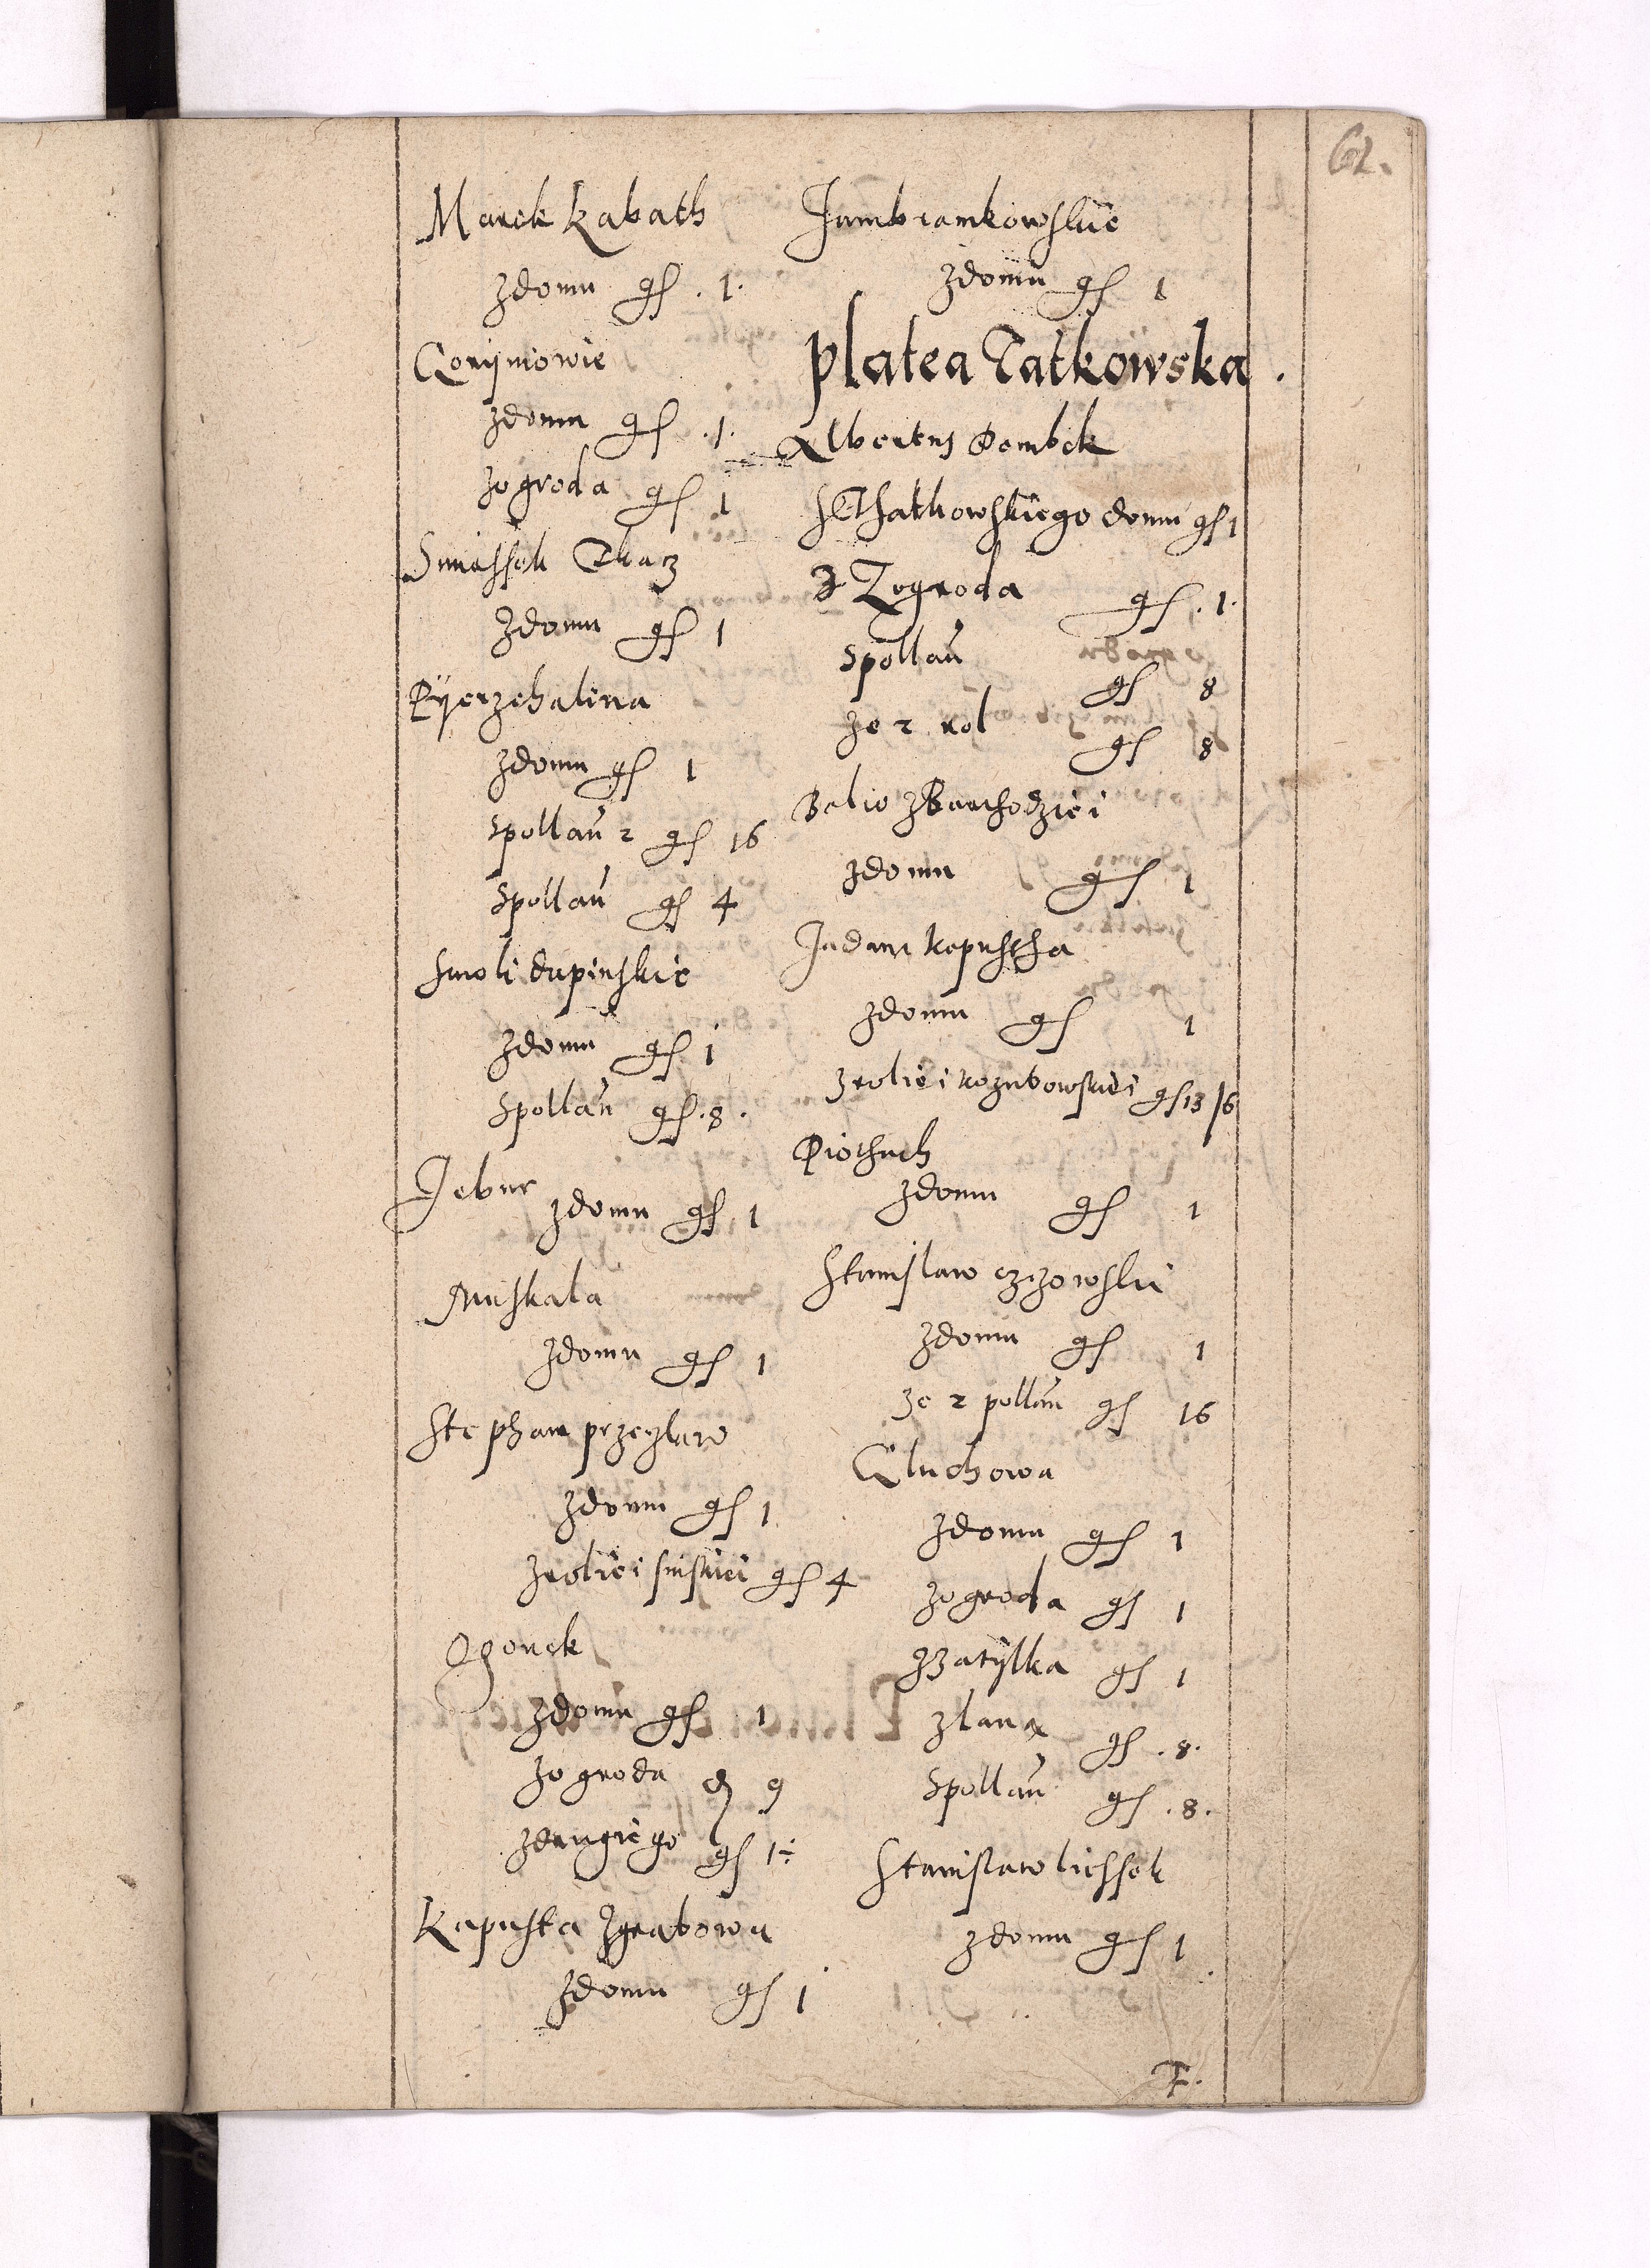 62.
Marek Kabath
zdomu gſ . 1.
Goryniowie
zdomu gſ . 1.
zogroda gſ 1
Simaſſek Tkacz
zdomu gſ 1
Ryerzchalina
zdomu gſ 1
spollan 2 gſ 16
spollan gſ 4
Smoli dupinſkie
zdomu gſ 1
spollan gſ . 8 .
Jebur zdomu gſ 1
Muſkala
zdomu gſ 1
Stephan przezlaw
zdomu gſ 1
zroliei ſinſkiei gſ 4
Ogonek
zdomu gſ 1
zogroda 9
zdrugiego gſ 1
Kapuſta zgrabowa
zdomu gſ 1
Jambramkowſkie
zdomu gſ 1
Platea Tatkowska .
Albertus Dombek
sThatkowſkiego domu gſ 1
z Zogroda gſ . 1 .
spollan gſ 8
ze 2 rol gſ 8
Belio zBarchodziei
zdomu gſ 1
Jadam kapuſtha
zdomu gſ 1
zroliei kozubowſkiei gſ 13 /6
Piothuch
zdomu gſ 1
Staniſlaw czyzowſki
zdomu gſ 1
ze 2 pollan gſ 16
Gluchowa
zdomu gſ 1
zogroda gſ 1
zZatylka gſ 1
zlana gſ . 8 .
spollan gſ . 8 .
Staniſlaw lieſſek
zdomu gſ 1